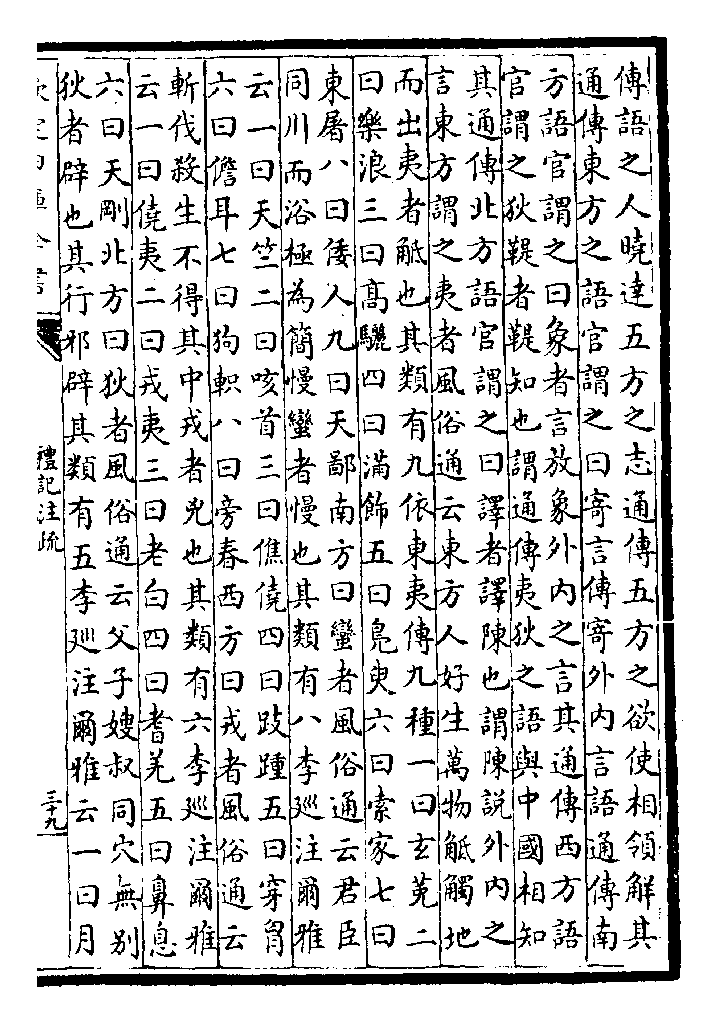 傳語之人曉達五方之志通傳五方之欲使相領解其
通傳東方之語官謂之曰寄言傳寄外内言語通傳南
方語官謂之曰象者言放象外内之言其通傳西方語
官謂之狄鞮者鞮知也謂通傳夷狄之語與中國相知
其通傳北方語官謂之曰譯者譯陳也謂陳說外内之
言東方謂之夷者風俗通云東方人好生萬物觝觸地
而出夷者觝也其類有九依東夷傳九種一曰玄菟二
曰樂浪三曰髙驪四曰滿飾五曰鳬臾六曰索家七曰
東屠八曰倭人九曰天鄙南方曰蠻者風俗通云君臣
同川而浴極為簡慢蠻者慢也其類有八李廵注爾雅
云一曰天竺二曰咳首三曰僬僥四曰跂踵五曰穿胷
六曰儋耳七曰狗軹八曰旁春西方曰戎者風俗通云
斬伐殺生不得其中戎者兇也其類有六李廵注爾雅
云一曰僥夷二曰戎夷三曰老白四曰耆羌五曰鼻息
六曰天剛北方曰狄者風俗通云父子嫂叔同穴無别
狄者辟也其行邪辟其類有五李廵注爾雅云一曰月
欽定四庫全書
禮記注疏
三十九